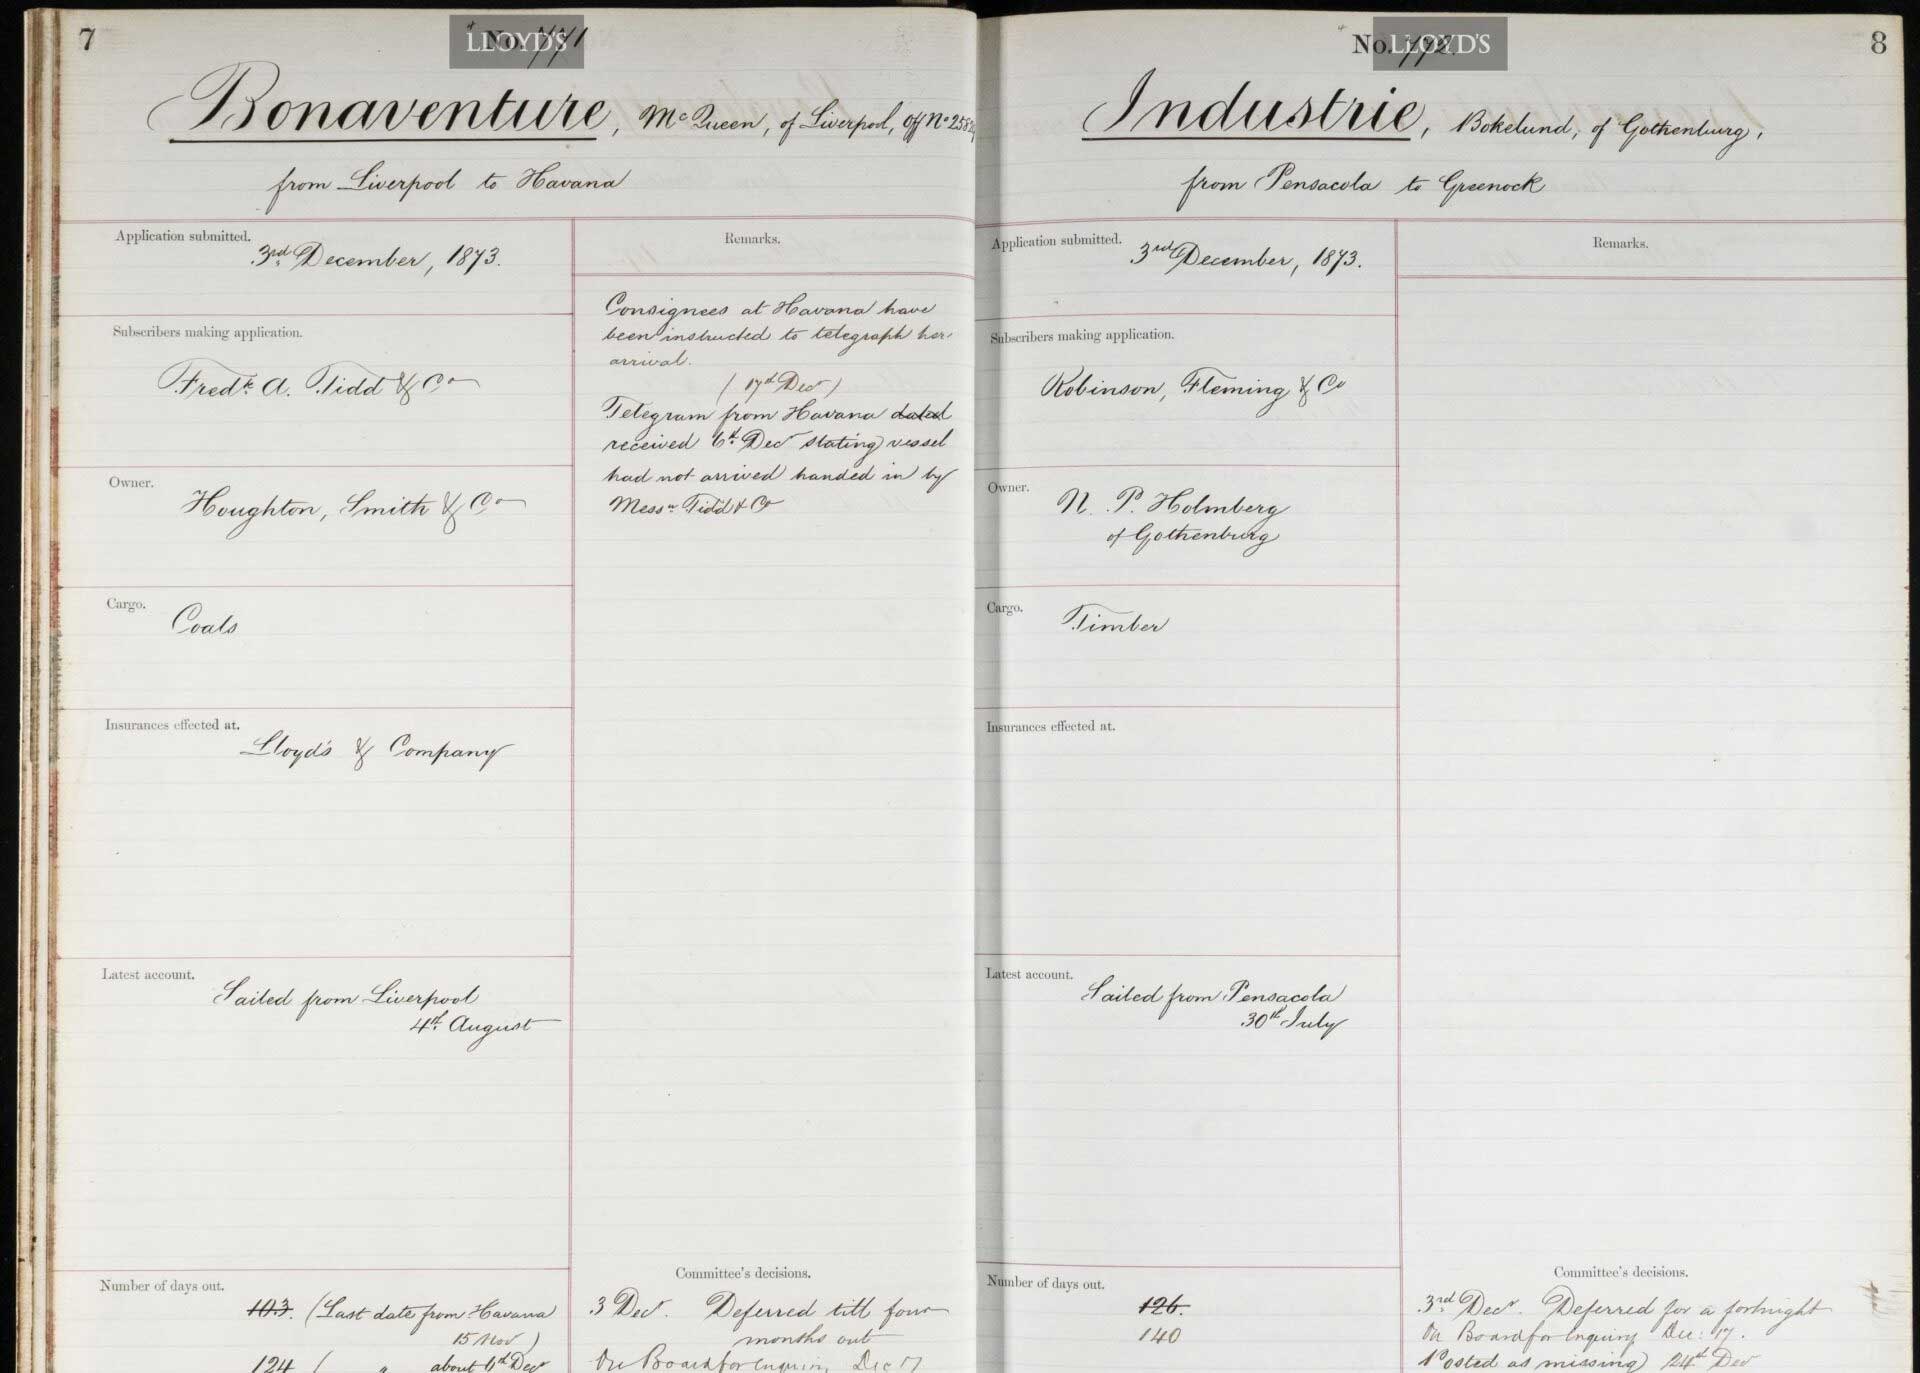 7
LLOYD'S
No. 771
Bonaventure, McQueen, of Liverpool, Off No
from Liverpool to Havana
Application submitted.
3rd December, 1873.
Remarks.
Subscribers making application.
Fredk. A. Tidd & Co
Consignees at Havana have
been instructed to telegraph her
arrival.
(17th Decr)
Telegram from Havana dated
received 6th Decr stating vessel
had not arrived handed in by
Messrs Tidd & Co
Owner.
Houghton, Smith & Co
Cargo.
Coals
Insurances effected at.
Lloyd's & Company
Latest account.
Sailed from Liverpool
4th August
Number of days out.
103. (Last date from Havana
15 Nov)
124 ( " about 6th Decr
Committee's decisions.
3 Decr. Deferred till four
months out
On Board for Enquiry Dec 17
8
LLOYD'S
No.
Industrie, Bokelund, of Gothenburg,
from Pensacola to Greenock
Application submitted.
3rd December, 1873.
Remarks.
Subscribers making application.
Robinson, Fleming & Co
Owner.
N. P. Holmberg
of Gothenburg
Cargo.
Timber
Insurances effected at.
Latest account.
Sailed from Pensacola
30th July
Number of days out.
126.
140
Committee's decisions.
3rd Decr. Deferred for a fortnight
On Board for Enquiry Dec: 17.
Posted as missing 24th Dec